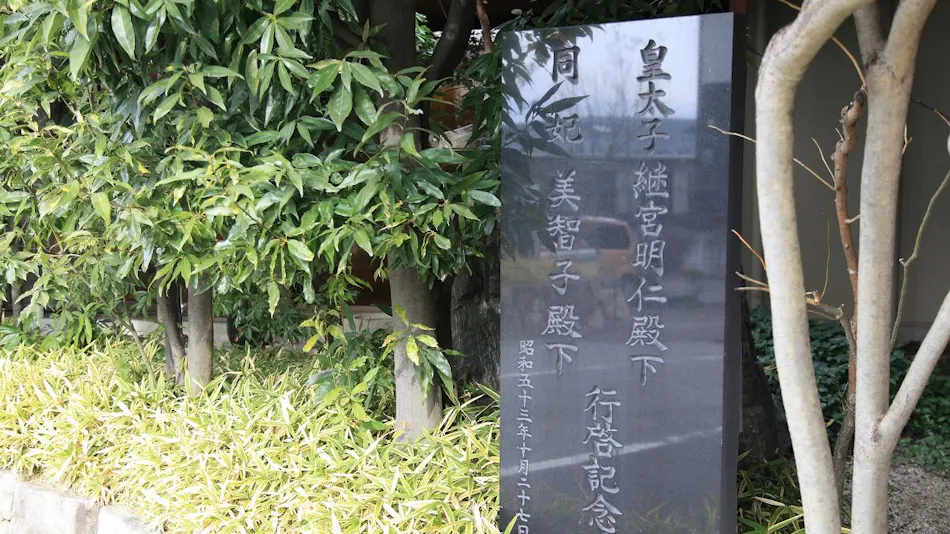 皇太子 継宮明仁殿下
同妃 美智子殿下
行啓記念
昭和五十三年十月二十七日